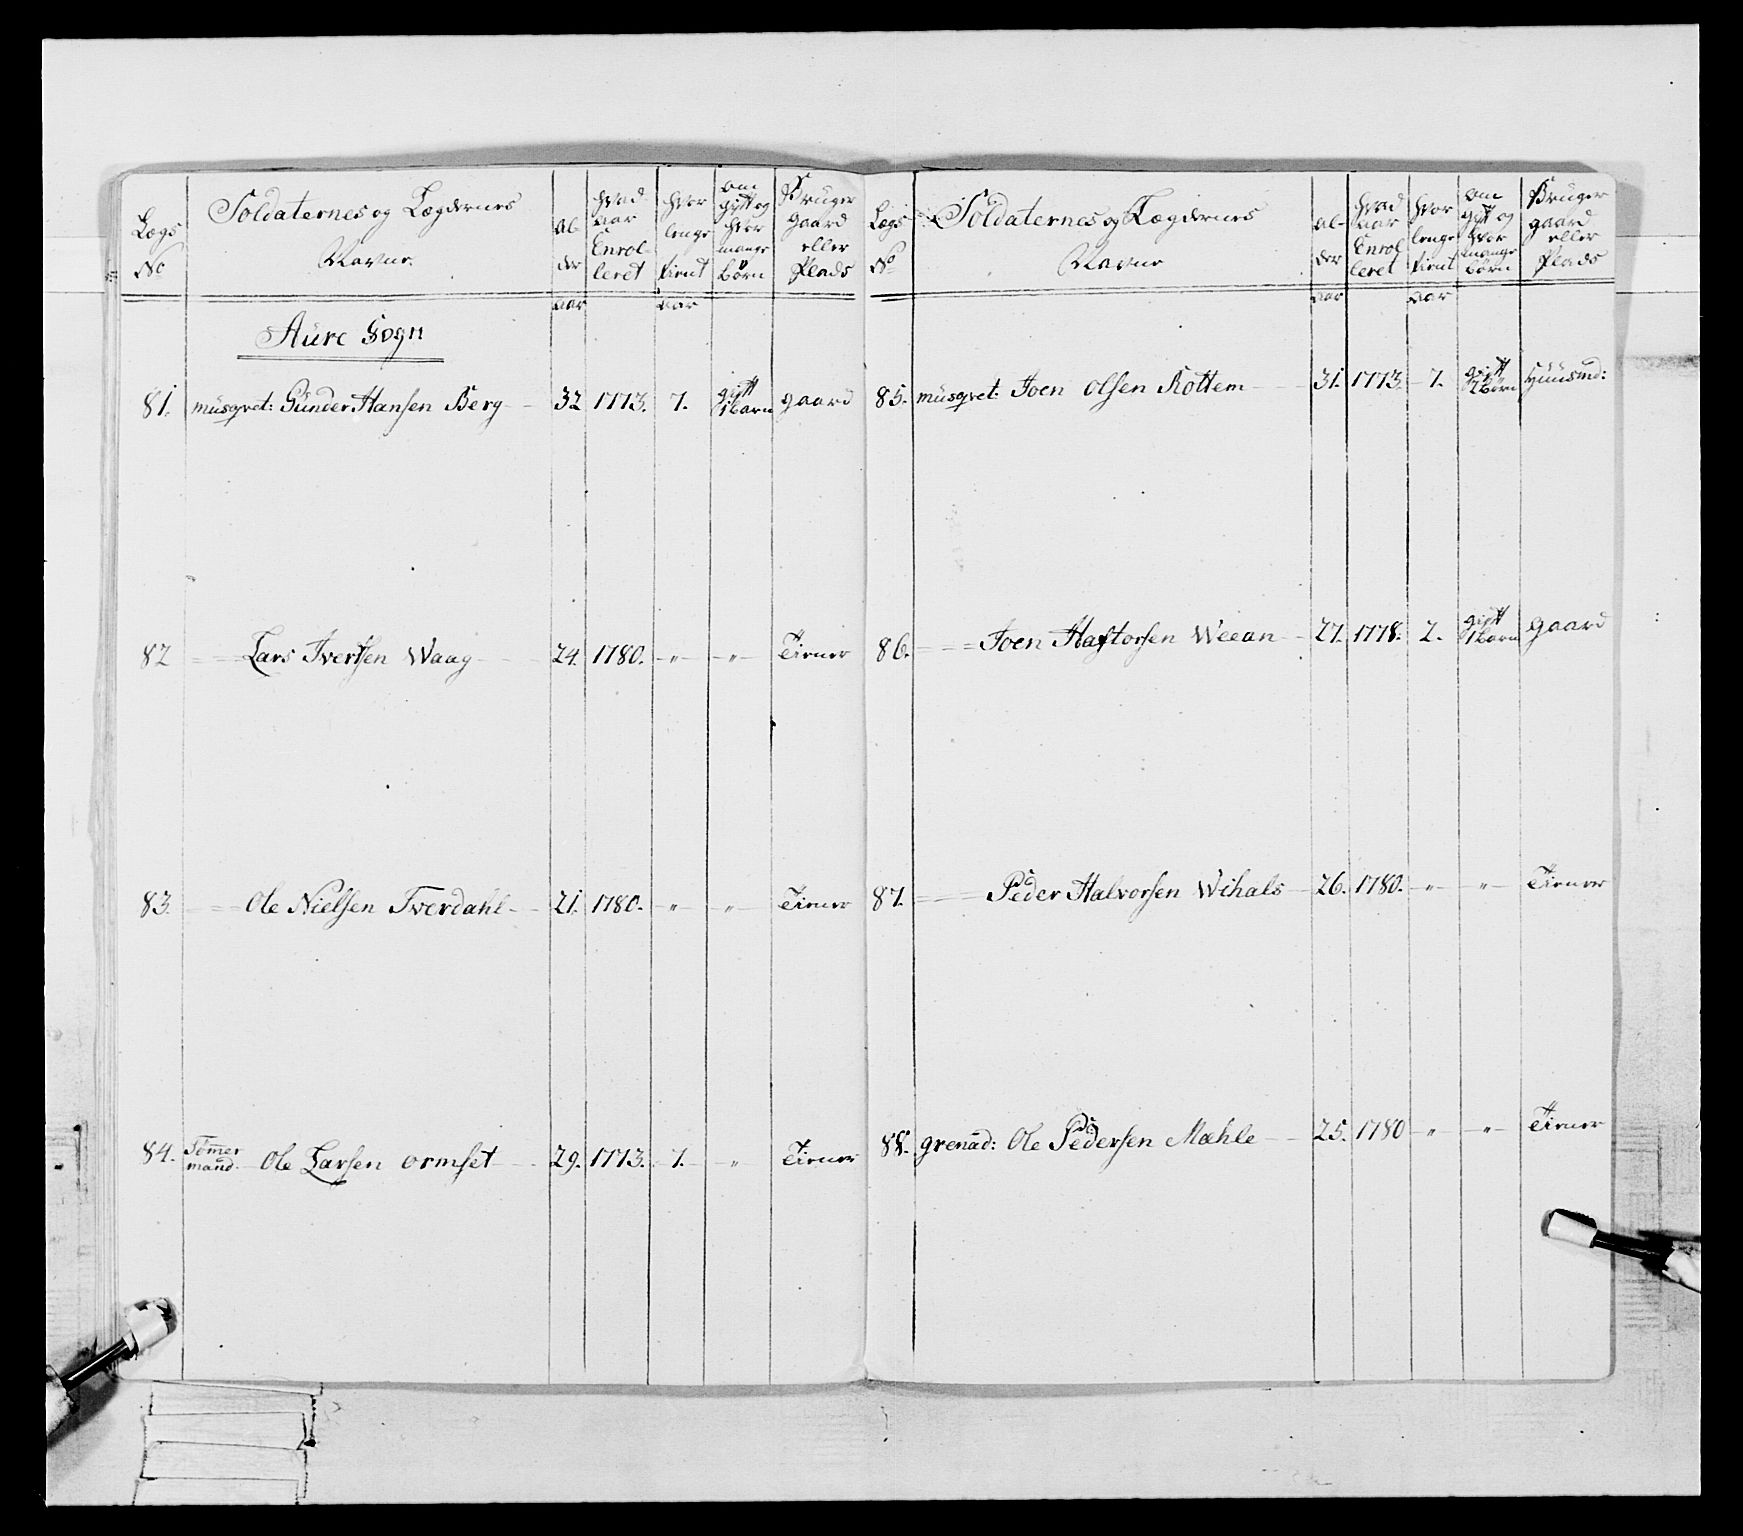 Lægs No
Soldaternes og Lægdernes Navne
Al-der aar
Hvad aar Enrol-leret
Hvor lenge tient aar
om gift og hvor mange børn
Bruger gaard eller Plads
Aure Sogn
81. musqvet: Gunder Hansen Berg 32 1773. 7. gift 1 barn gaard
82 Lars Ivertsen Waag 24. 1780. " " Tiener
83. Ole Nielsen Tverdahl 21. 1780. " " Tiener
84. Tømer mand. Ole Larsen Ormset 29. 1773. 7. " Tiener
Lægs No
Soldaternes og Lægdernes Navne
al-der aar
Hvad aar Enrol-leret
Hvor lenge tient aar
om gift og hvor mange børn
Bruger gaard eller Plads
85. musqvet: Joen Olsen Rottem 31. 1773 7. gift 2 børn Huusmd:
86. Joen Hastorsen Weean 27. 1778. 2. gift 1 barn gaard
87. Peder Halvorsen Wihals 26. 1780. " " Tiener
88. grenad: Ole Pedersen Mæhle 25. 1780 " " Tiener